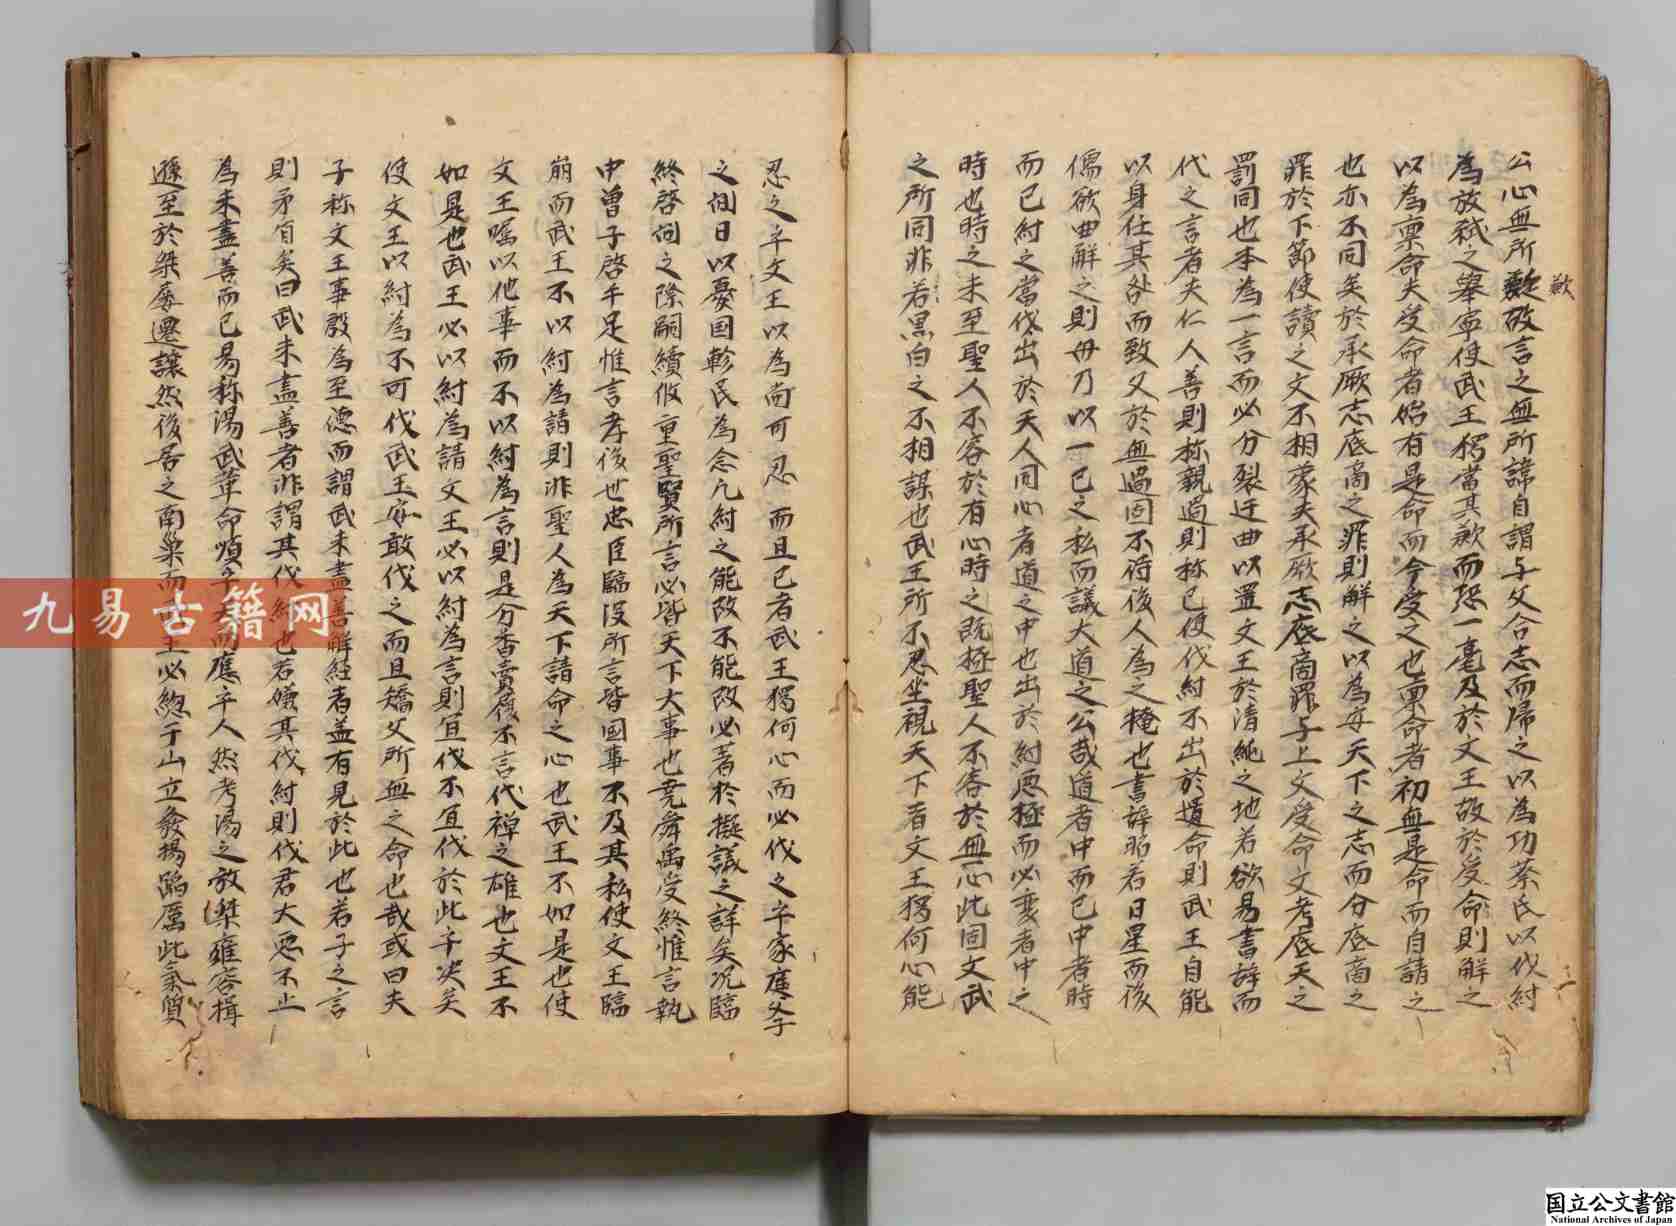 公心無所歉故言之無所諱自謂与父合志而帰之以為功蔡氏以伐紂
歉
為放弑之舉寧使武王獨當其歉而恐一毫及於文王故於受命則解之
以為稟命夫受命者始有是命而今受之也稟命者初無是命而自請之
也亦不同矣於承厥志底商之罪則解之以為安天下之志而分底商之
罪於下節使讀之文不相蒙夫承厥志底商罪与上文受命文考底天之
罰同也本為一言而必分裂迂曲以置文王於清純之地若欲易書辞而
代之言者夫仁人善則称親過則称己使伐紂不出於遺命則武王自能
以身任其咎而致父於無過固不待後人為之掩也書辞昭若日星而後
儒欲曲解之則毋乃以一己之私而議大道之公哉道者中而已中者時
而已紂之當伐出於天人同心者道之中也出於紂悪極而必変者中之
時也時之未至聖人不容於有心時之既極聖人不容於無心此固文武
之所同非若黒白之不相謀也武王所不忍坐視天下者文王獨何心能
忍之乎文王以為尚可忍而且已者武王獨何心而必伐之乎家庭父子
之间日以憂国軫民為念凡紂之能改不能改必著於擬議之詳矣况臨
終啓佀之際嗣續攸重聖賢所言必皆天下大事也尭舜禹受終惟言執
中曽子啓手足惟言孝後世忠臣臨没所言皆国事不及其私使文王臨
崩而武王不以紂為請則非聖人為天下請命之心也武王不如是也使
文王嘱以他事而不以紂為言則是分香賣履不言代禅之雄也文王不
如是也武王必以紂為請文王必以紂為言則宜伐不宜伐於此乎决矣
使文王以紂為不可伐武王安敢伐之而且矯父所無之命也哉或曰夫
子称文王事殷為至德而謂武未盡善解経者盖有見於此也若子之言
則矛盾矣曰武未盖善者非謂其伐紂也若嫌其伐紂則伐君大悪不止
為未盡善而已易称湯武革命順乎天而應乎人然考湯之放桀雍容揖
遜至於桀屡遷讓然後居之南巢而武王必緫于山立發揚蹈厲此氣質
九易古籍网
国立公文書館
National Archives of Japan